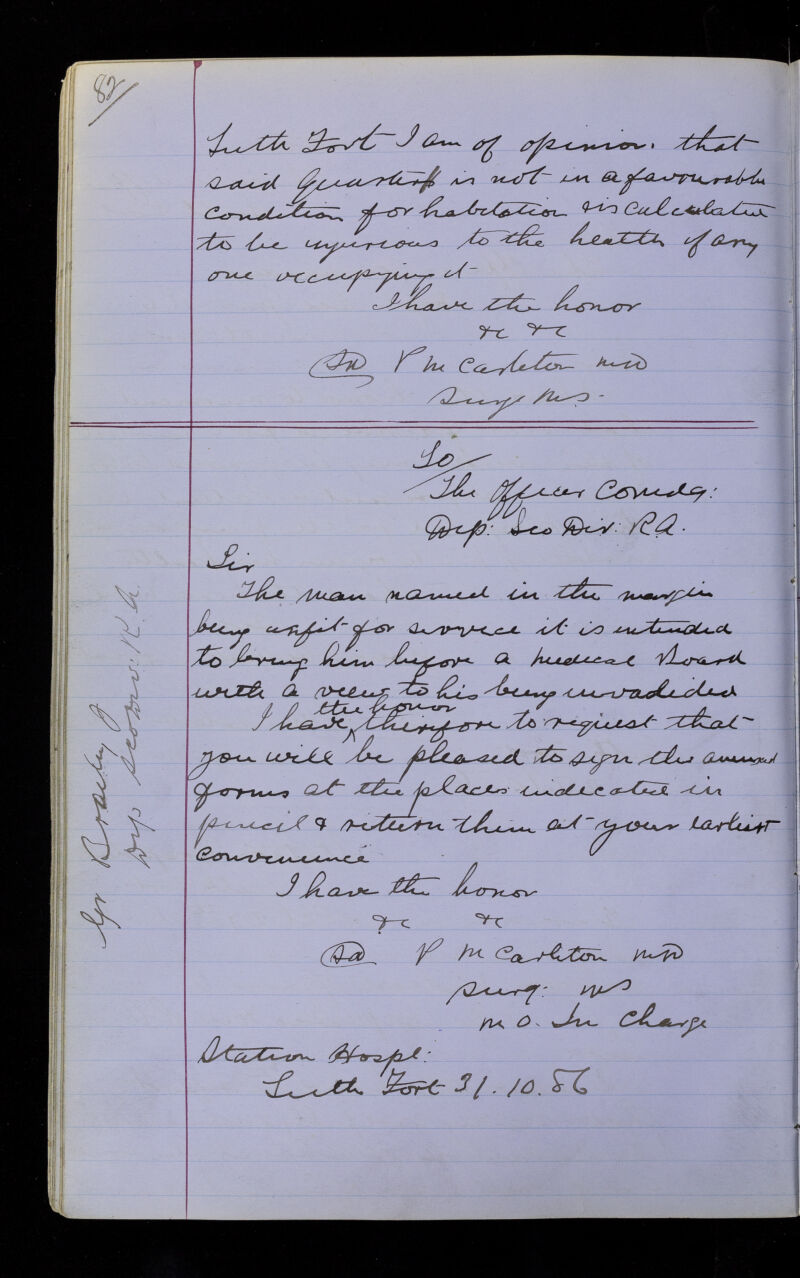 82
Leith Fort I am of opinion that
said Quarters is not in a favourable
condition for habitation & is calculated
to be injurious to the health of any
one occupying it
I have the honor
&c &c
(Sd) P M Carleton MD
Surg MS.
To
The Officer Comdg:
Dep: Sco Div: R.A.
Sir
The man named in the margin
being unfit for service it is intended
to bring him before a Medical Board
with a view to his being invalided
I have the honor therefore to request that
you will be pleased to sign the annexed
forms at the places indicated in
pencil & return them at your earliest
convenience
I have the honor
&c &c
(Sd) P M Carleton MD
Surg: MS
M O. In Charge
Station Hospl:
Leith Fort 31.10.86
Gr Brailey J
Dep Sco Div: R.A.